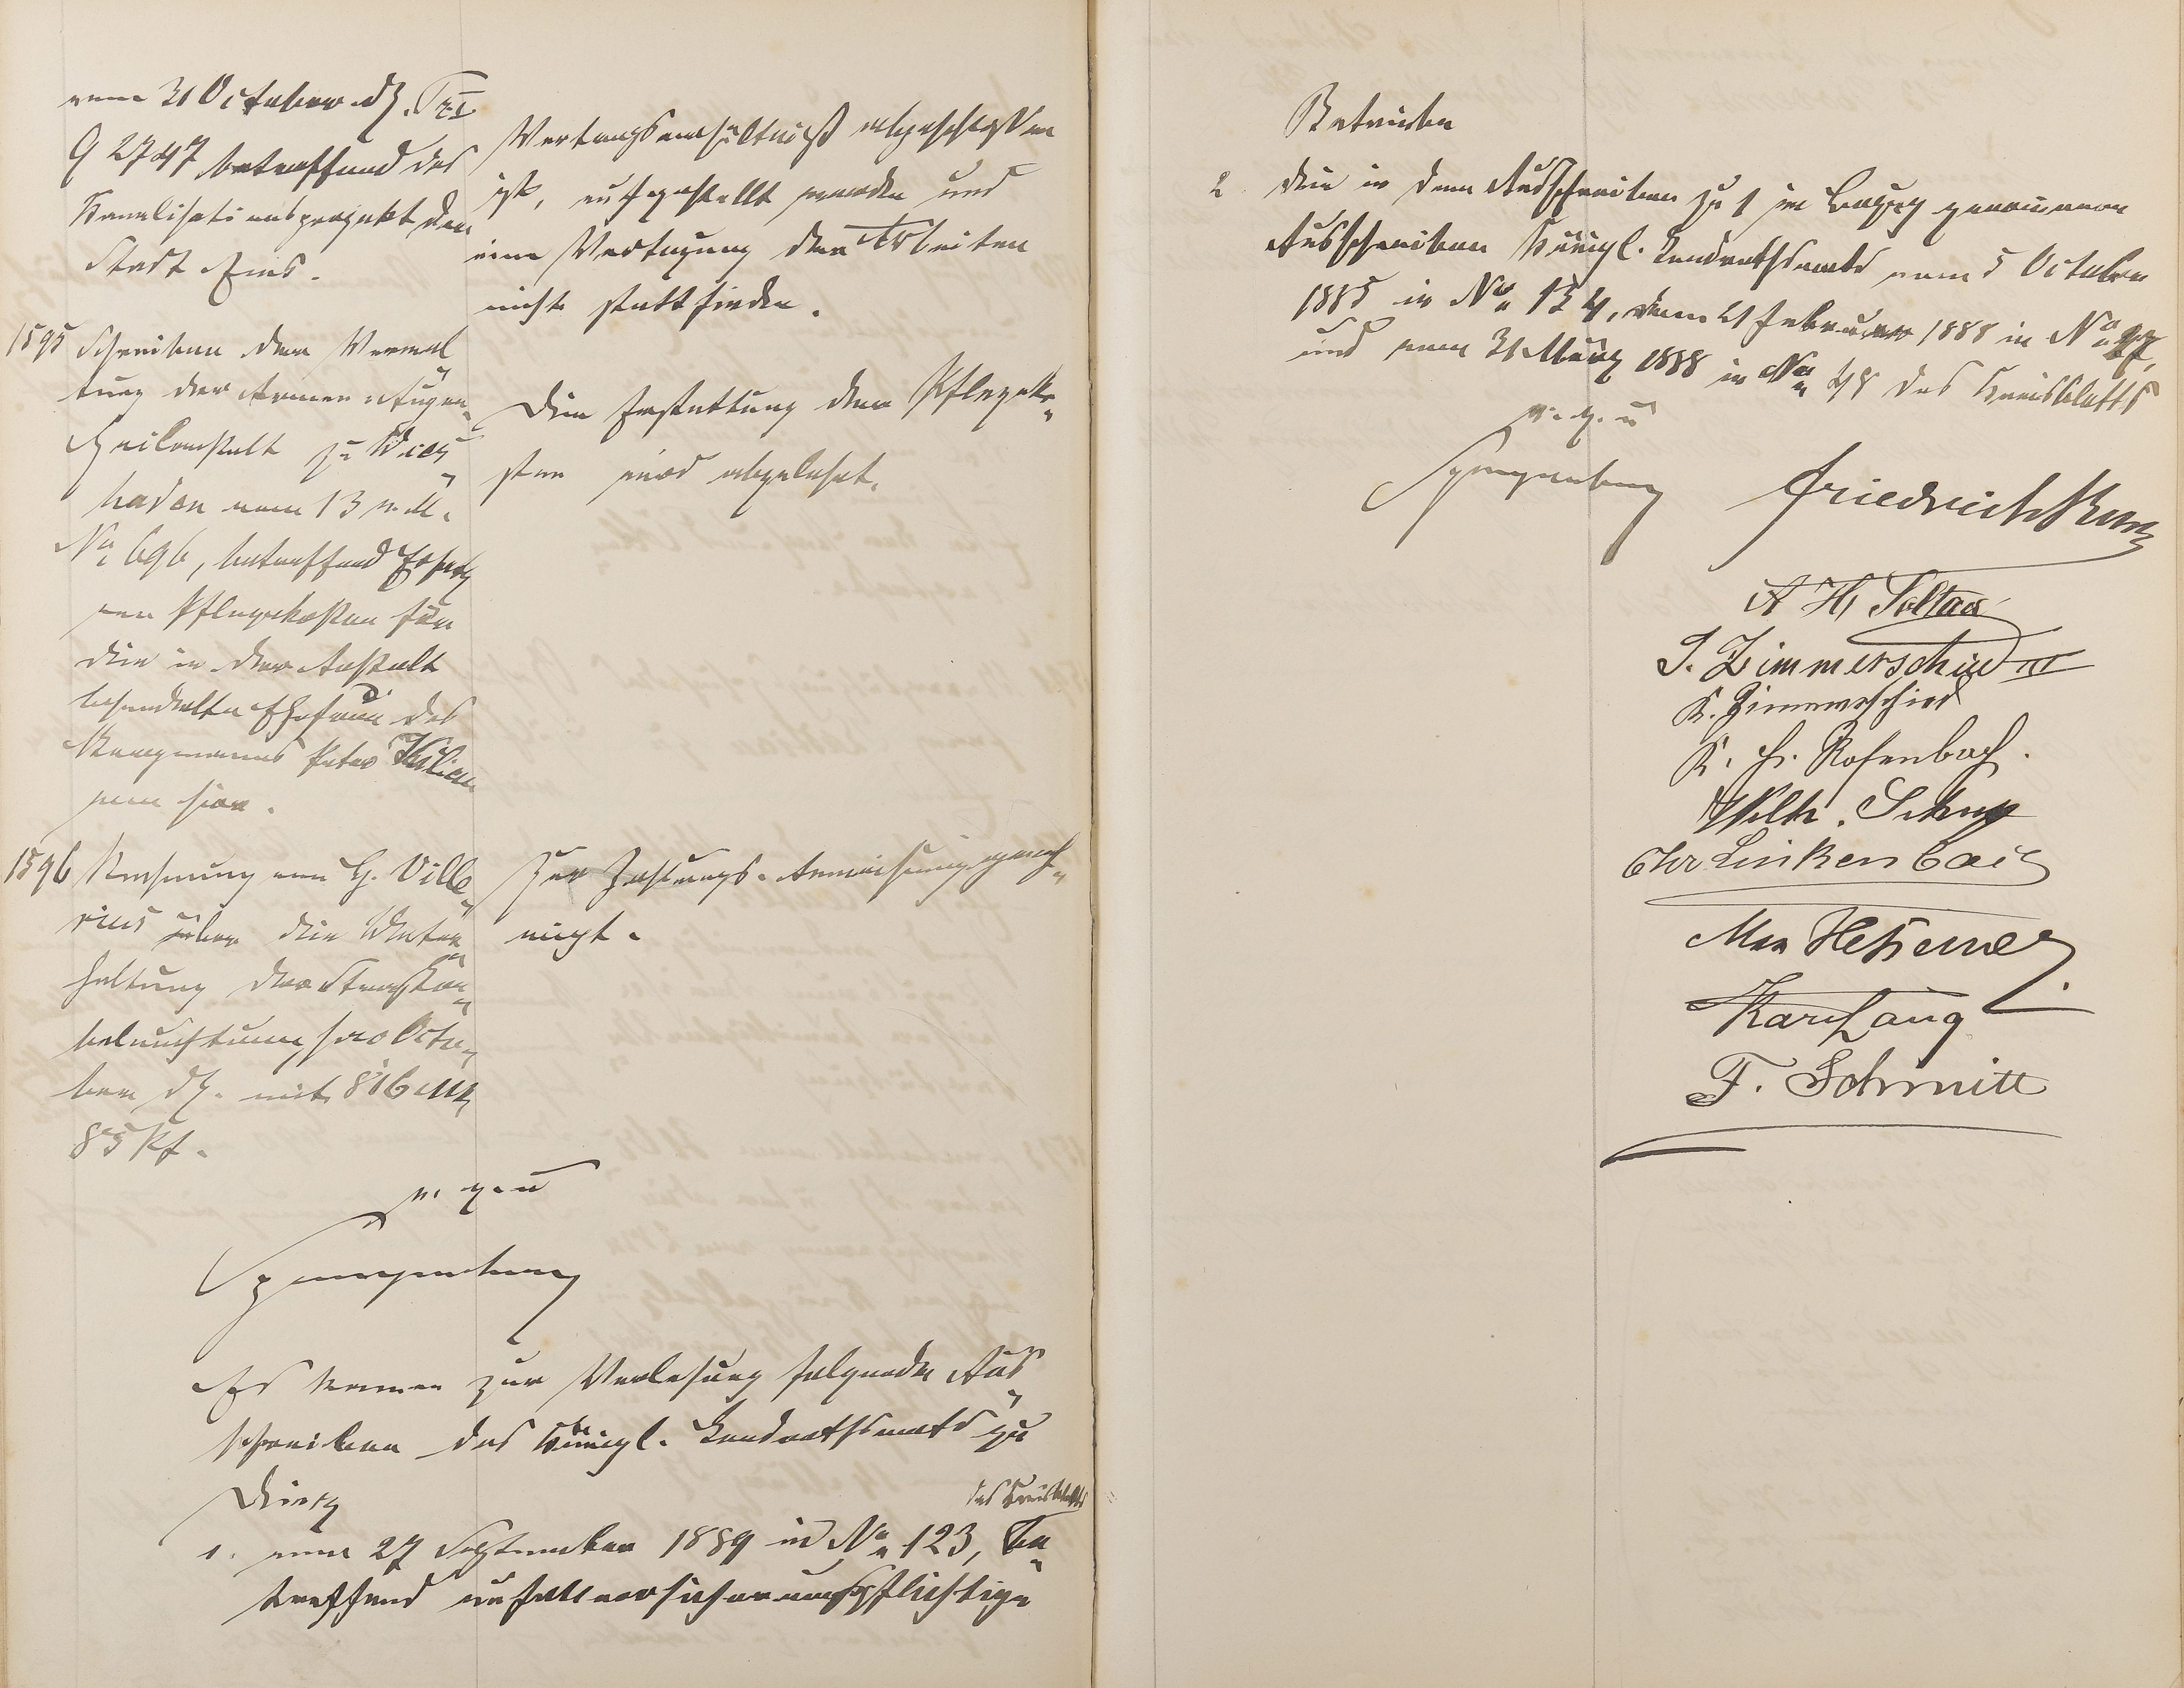 vom 31 October dJ. Pr. I
G 2747 betreffend das
Kanalisationsprojekt der
Stadt Ems.
Vertragsverhältniß abgeschlossen
ist, aufgestellt werden und
eine Vertagung der Arbeiten
nicht stattfinden.
1595 Schreiben der Verwal„
tung der Armen-Augen„
Heilanstalt zu Wies„
baden vom 13 v. M.
No 696, betreffend Ersatz
von Pflegekosten für
die in der Anstalt
behandelte Ehefrau des
Peter Kilian
von hier.
Die Erstattung der Pflegeko„
sten wird abgelehnt.
1596 Rechnung von G. Ville„
rius über die Unter„
haltung der Straßen„
beleuchtung pro Octo„
ber dJ. mit 816 Mk
85 Pf.
Zur Zahlungs-Anweisung geneh„
migt.
v. g. u
Spangenberg
Es kamen zur Verlesung folgende Aus„
schreiben des Königl. Landrathsamts zu
Dietz
des Kreisblatts
1. vom 27 September 1889 in No 123, be„
treffend unfallversicherungspflichtige
Betriebe
2. die in dem Ausschreiben zu 1 in Bezug genommenen
Ausschreiben Königl. Landrathsamts vom 5 October
1885 in No 124, vom 21 Februar 1888 in No 27,
und vom 31 März 1888 in No 48 des Kreisblatts
v. g. u
Spangenberg
Friedrich Kunz
A H Soltau
J. Zimmerschied IV
K. Zimmerschied
K. Fr. Rosenbach.
Wilh. Schupp
Chr Linkenbach
Max Heßemer
Karl Lang
F. Schmitt